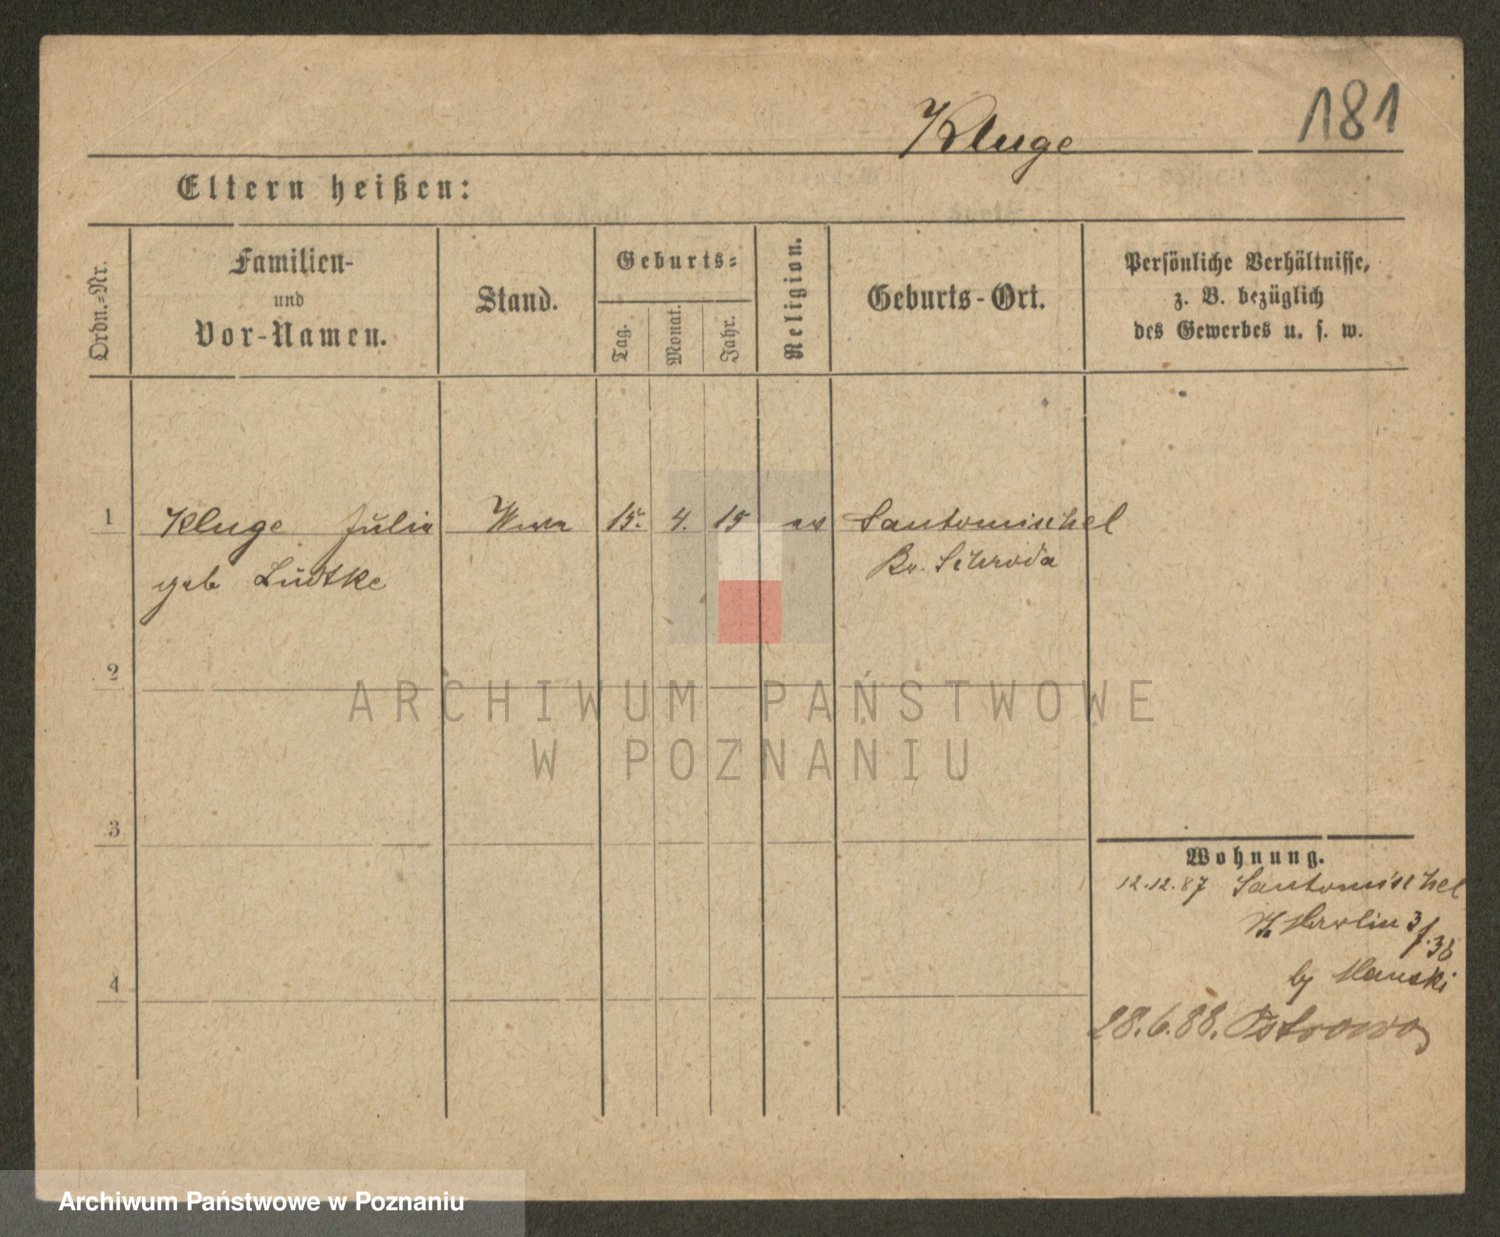 Kluge
181
Eltern heißen:
Ordn.-Nr.
Familien-
und
Vor-Namen.
Stand.
Geburts-
Tag.
Monat.
Jahr.
Religion.
Geburts-Ort.
Persönliche Verhältnisse,
z. B. bezüglich
des Gewerbes u. s. w.
1 Kluge Julia Wwe 15. 4. 15 ev Santomischel
geb Lüdtke Kr. Schroda
2
ARCHIWUM PAŃSTWOWE
W POZNANIU
3
Wohnung.
12.12.87 Santomischel
Berlin 3
by Manski
4
28.6.88. Ostrowo
Archiwum Państwowe w Poznaniu